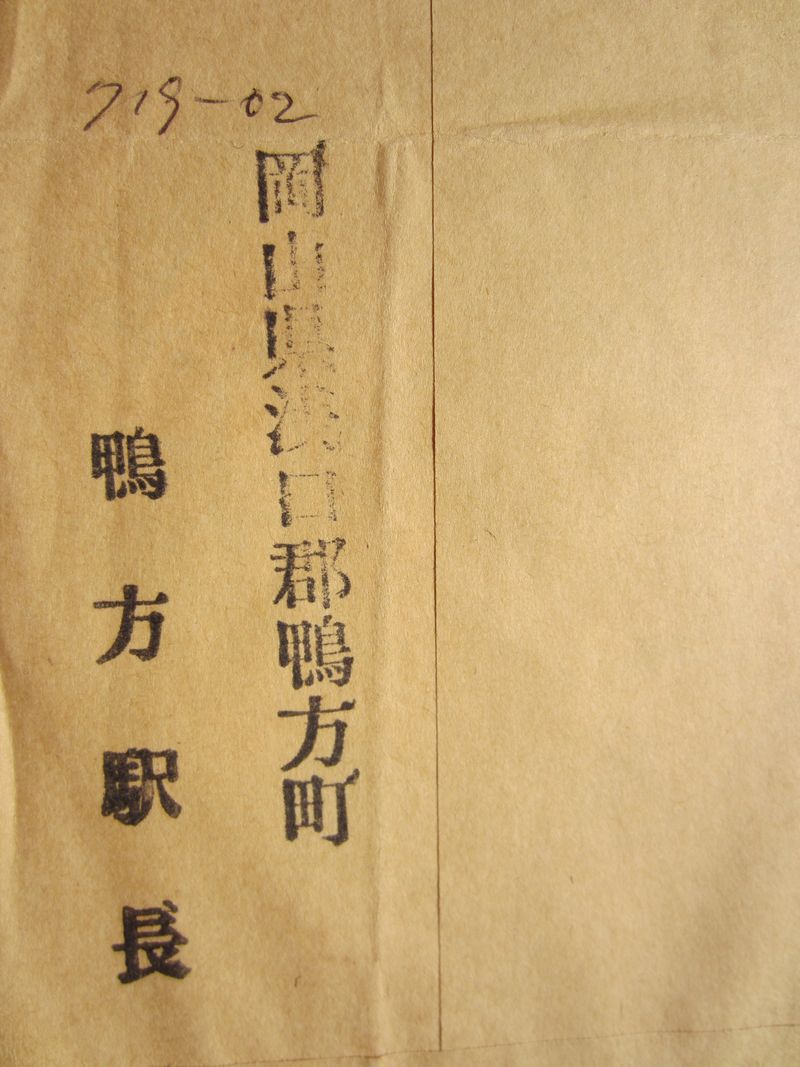 719-02
岡山県浅口郡鴨方町
鴨方駅長